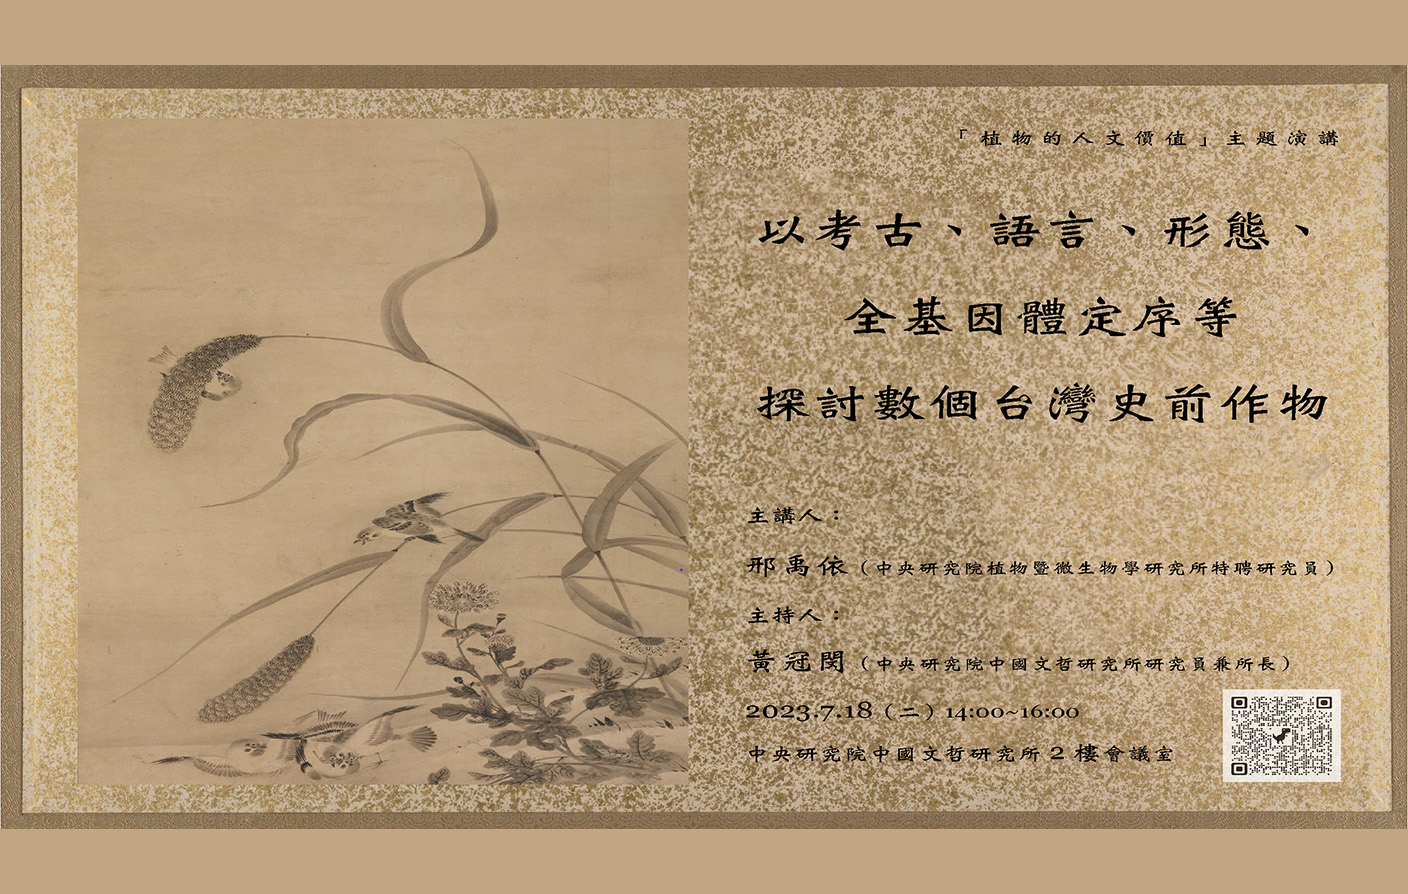 「植物的人文價值」主題演講
以考古、語言、形態、
全基因體定序等
探討數個台灣史前作物
主講人：
邢禹依（中央研究院植物暨微生物學研究所特聘研究員）
主持人：
黃冠閔（中央研究院中國文哲研究所研究員兼所長）
2023.7.18（二）14:00~16:00
中央研究院中國文哲研究所 2 樓會議室